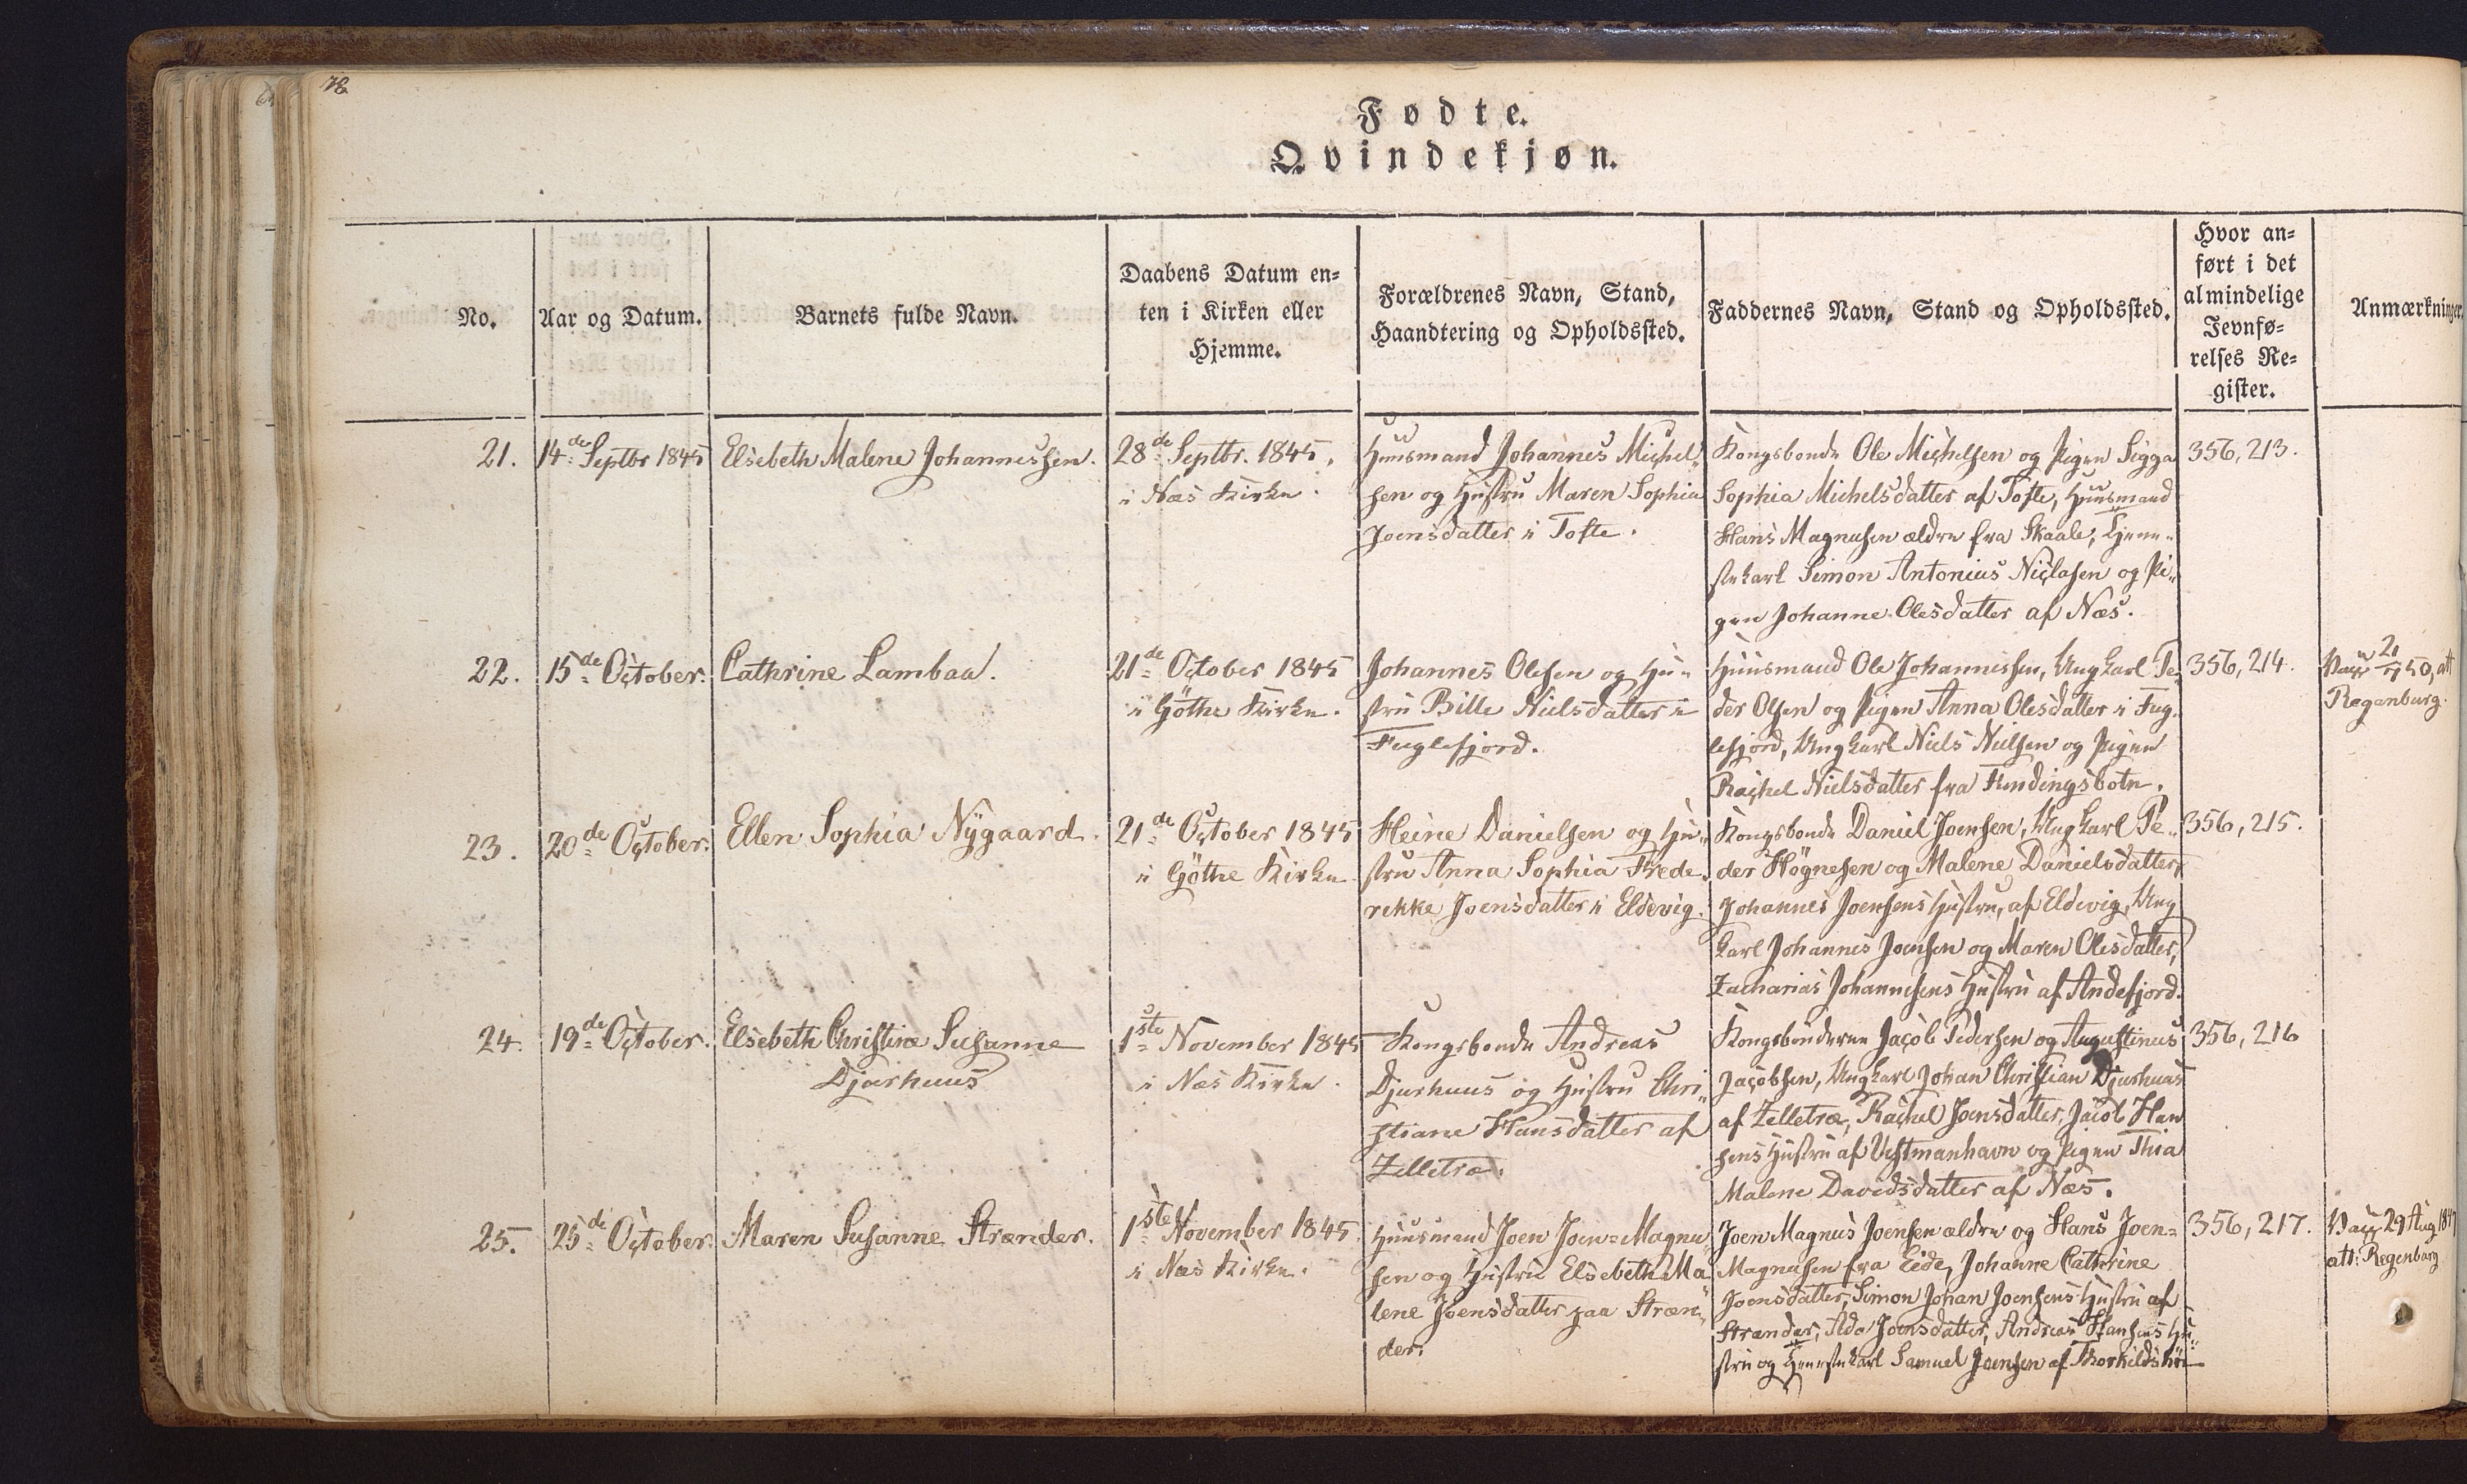 78
Fødte.
Qvindekjøn.
No.
Aar og Datum.
Barnets fulde Navn.
Daabens Datum en-
ten i Kirken eller
Hjemme.
Forældrenes Navn, Stand,
Haandtering og Opholdssted.
Faddernes Navn, Stand og Opholdssted.
Hvor an-
ført i det
almindelige
Jevnfø-
relses Re-
gister.
Anmærkninger.
21.
14de Septbr 1845
Elsebeth Malene Johannessen.
28de Septbr. 1845,
i Næs Kirke.
Huusmand Johannes Michel-
sen og Hustru Maren Sophia
Joensdatter i Tofte.
Kongsbonde Ole Michelsen og Pigen Sigga
Sophia Michelsdatter af Tofte, Huusmand
Hans Magnusen ældre fra Skaale, Tjene-
stekarl Simon Antonius Niclasen og Pi-
gen Johanne Olesdatter af Næs.
356, 213.
22.
15de October.
Cathrine Lambaa.
21de October 1845
i Göthe Kirke.
Johannes Olesen og Hu-
stru Bille Nielsdatter i
Fuglefjord.
Huusmand Ole Johannessen, Ungkarl Pe-
der Olsen og Pigen Anna Olesdatter i Fug-
lefjord, Ungkarl Niels Nielsen og Pigen
Rachel Nielsdatter fra Fundingsbotn.
356, 214.
Vacc 21/7 50, att
Regenburg.
23.
20de October.
Ellen Sophia Nÿgaard.
21de October 1845
i Göthe Kirke
Heine Danielsen og Hu-
stru Anna Sophia Frede-
rikke Joensdatter i Eldevig.
Kongsbonde Daniel Joensen, Ungkarl Pe-
der Högnesen og Malene Danielsdatter,
Johannes Joensens Hustru, af Eldevig, Ung
karl Johannes Joensen og Maren Olesdatter,
Zacharias Johannesens Hustru af Andefjord.
356, 215.
24.
19de October.
Elsebeth Christine Susanne
Djurhuus
1ste November 1845
i Næs Kirke.
Kongsbonde Andreas
Djurhuus og Hustru Chri-
stiane Hansdatter af
Zelletræ.
Kongsbönderne Jacob Pedersen og Augustinus
Jacobsen, Ungkarl Johan Christian Djurhuus
af Zelletræ, Rachel Joensdatter, Jacob Han
sens Hustru af Vestmanhavn og Pigen Thia
Malene Davidsdatter af Næs.
356, 216
25.
25de October.
Maren Susanne Strænder.
1ste November 1845.
i Næs Kirke.
Huusmand Joen Joen-Magnu-
sen og Hustru Elsebeth Ma
lene Joensdatter paa Stræn-
der.
Joen Magnus Joensen ældre og Hans Joen-
Magnusen fra Eide, Johanne Cathrine
Joensdatter, Simon Johan Joensens Hustru af
Strænder, Ada Joensdatter, Andreas Hansens Hu-
stru og Tjenestekarl Samuel Joensen af
356, 217.
Vacc 29 Aug 1847
att: Regenburg